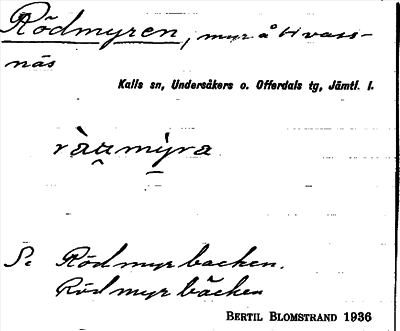 Rödmyren, myr å Hvass-
näs
Kalls sn, Undersåkers o. Offerdals tg, Jämtl. l.
Se Rödmyrbacken.
Rödmyrbäcken
BERTIL BLOMSTRAND 1936